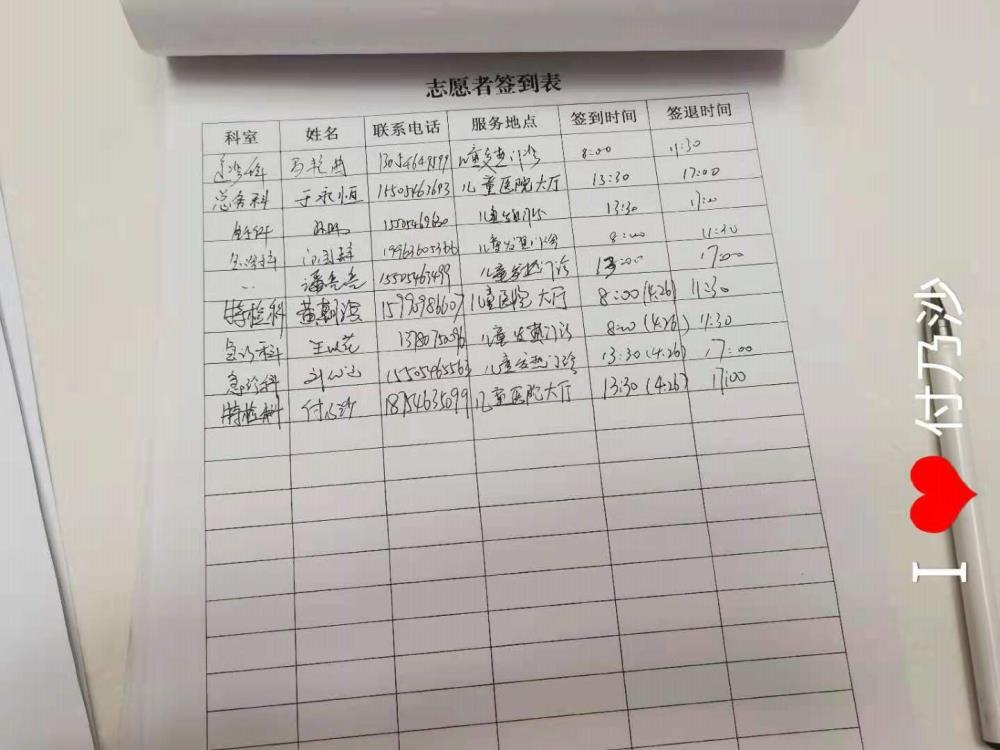 志愿者签到表
科室 姓名 联系电话 服务地点 签到时间 签退时间
急诊科 13054649899 儿童发热门诊 8:00 11:30
总务科 于永恒 15505463693 儿童医院大厅 13:30 17:00
儿童发热门诊 13:30 17:00
急诊科 19963605366 儿童发热门诊 8:00 11:30
潘 15505463499 儿童发热门诊 13:00 17:00
特检科 黄朝滨 15990986607 儿童医院大厅 8:00(4.26) 11:30
急诊科 王以花 儿童发热门诊 8:00(4.26) 11:30
急诊科 15505465563 儿童发热门诊 13:30(4.26) 17:00
特检科 付乃沙 18754635099 儿童医院大厅 13:30(4.26) 17:00
I 付乃沙